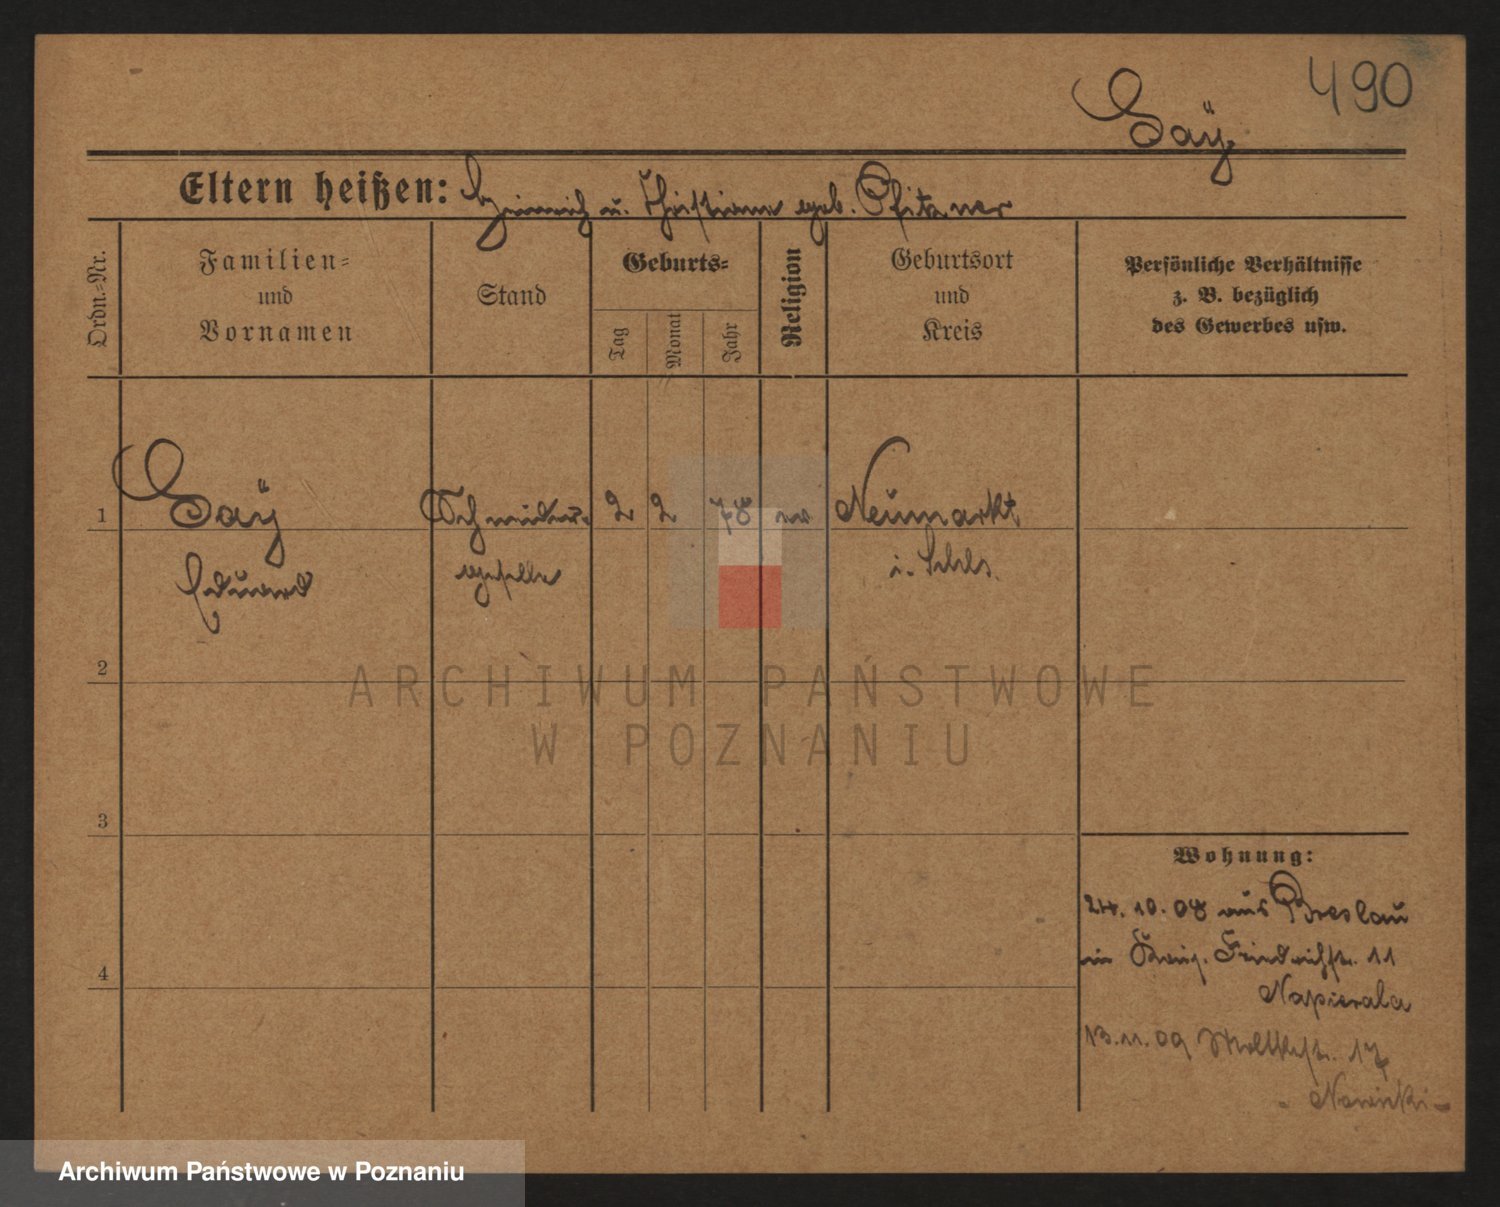 490
Gaÿ
Eltern heißen: Heinrich u. Christiane geb. Pfitzner
Ordn.-Nr.
Familien-
und
Vornamen
Stand
Geburts-
Tag
Monat
Jahr
Religion
Geburtsort
und
Kreis
Persönliche Verhältnisse
z. B. bezüglich
des Gewerbes usw.
1
Gaÿ
Schneider-
2
2
78
ev
Neumarkt
Eduard
geselle
i. Schles.
2
ARCHIWUM PAŃSTWOWE
W POZNANIU
3
Wohnung:
24. 10. 08 aus Breslau
Friedrichstr. 11
4
Napierala
13. 11. 09 Moltkestr. 17
Nowicki
Archiwum Państwowe w Poznaniu